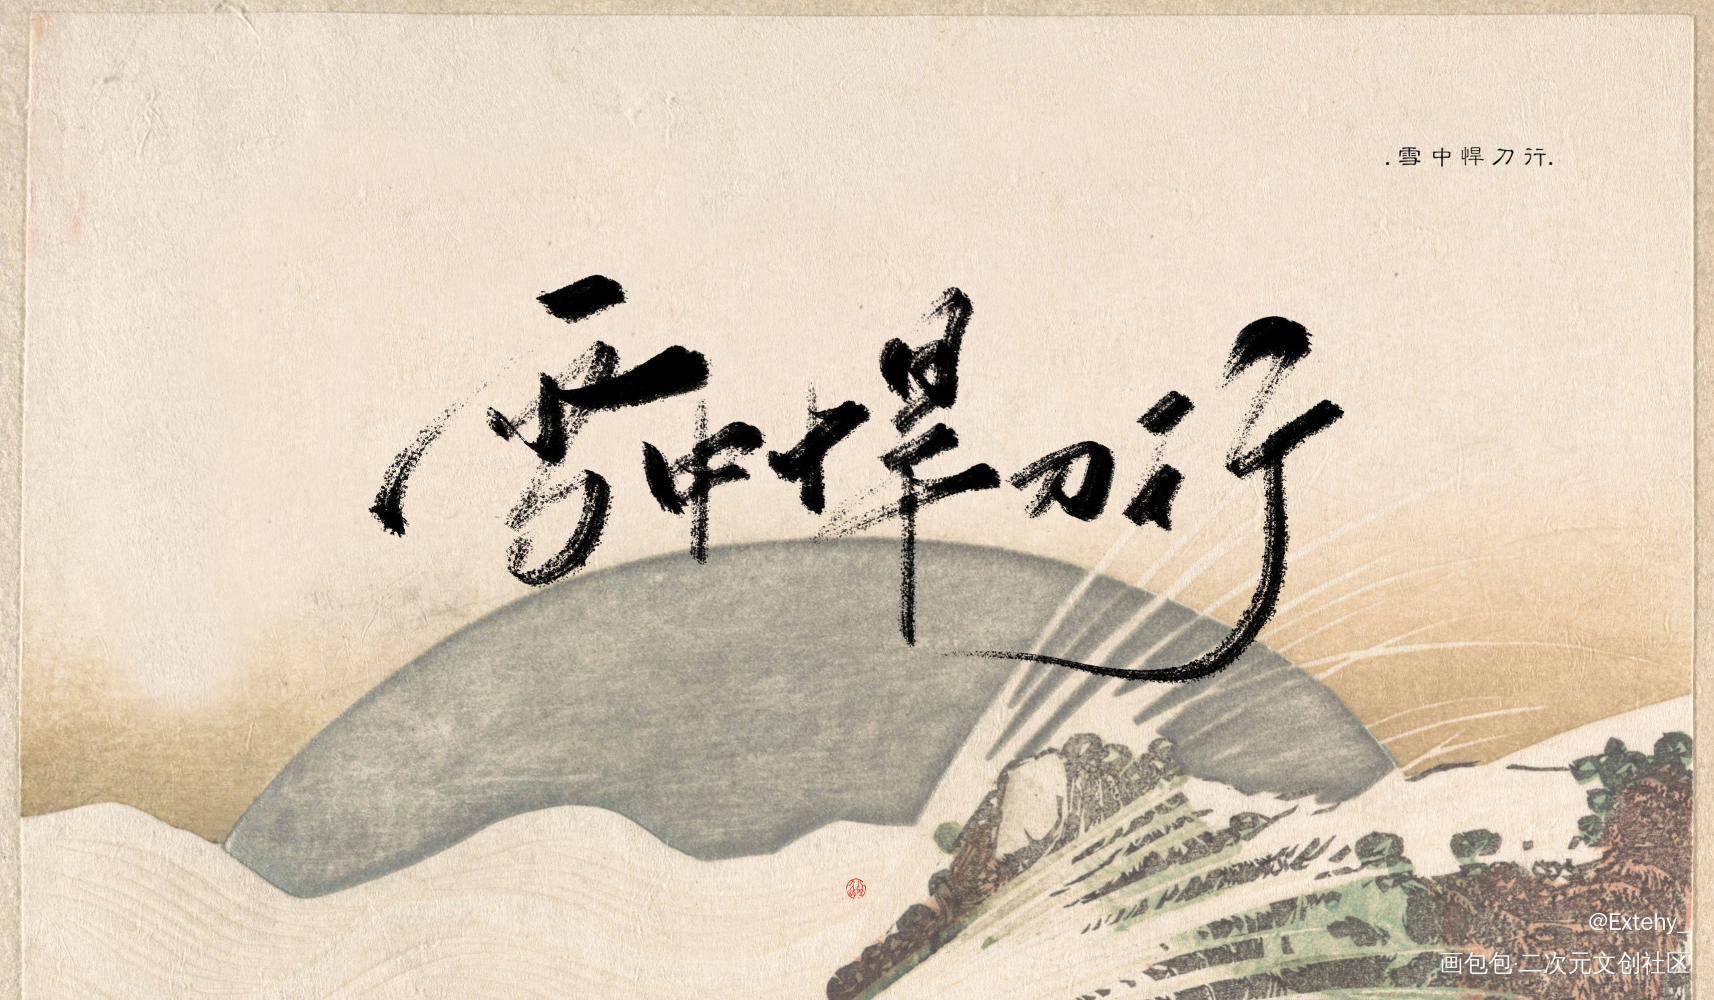 .雪中悍刀行.
雪中悍刀行
@Extehy_
画包包·二次元文创社区